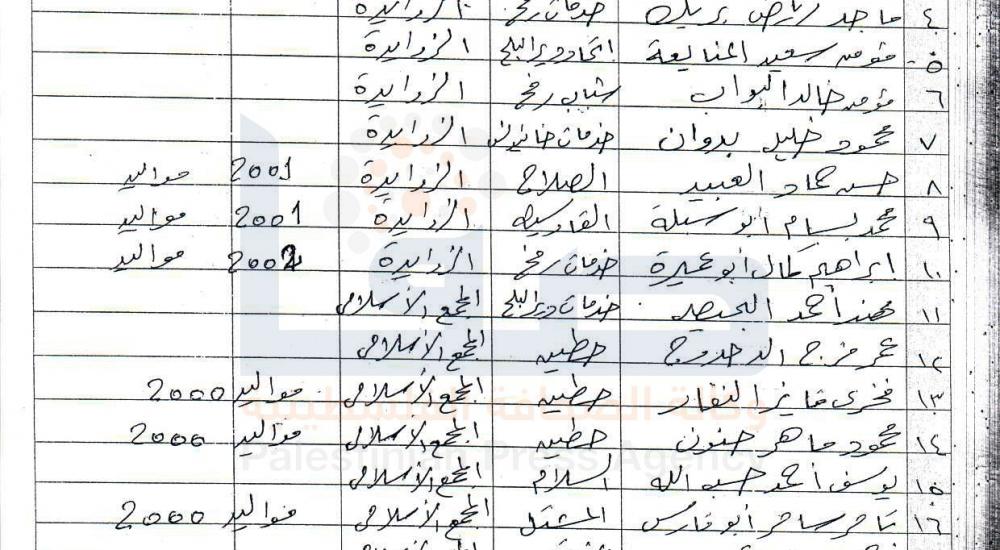 ٤ ماجد رياض بريك خدمات رفح الزوايدة
٥ مؤمن سعيد المنايعة اتحاد دير البلح الزوايدة
٦ مؤمن خالد البواب شباب رفح الزوايدة
٧ محمود خليل بدوان خدمات خانيونس الزوايدة
٨ حسن عماد العبيد الصلاح الزوايدة 2001 مواليد
٩ محمد بسام أبو سبلة القادسية الزوايدة 2001 مواليد
١٠ ابراهيم كمال أبو عميرة خدمات رفح الزوايدة 2002 مواليد
١١ مهند أحمد خدمات دير البلح المجمع الاسلامي
١٢ عمر فرج الدحدوح حطين المجمع الاسلامي
١٣ فخري فايز النفار حطين المجمع الاسلامي مواليد 2000
١٤ محمود ماهر حنون حطين المجمع الاسلامي مواليد 2000
١٥ يوسف أحمد حسب الله السلام المجمع الاسلامي
١٦ تامر سامر أبو فارس المشتل المجمع الاسلامي مواليد 2000
صفا
وكالة الصحافة الفلسطينية
Palestinian Press Agency